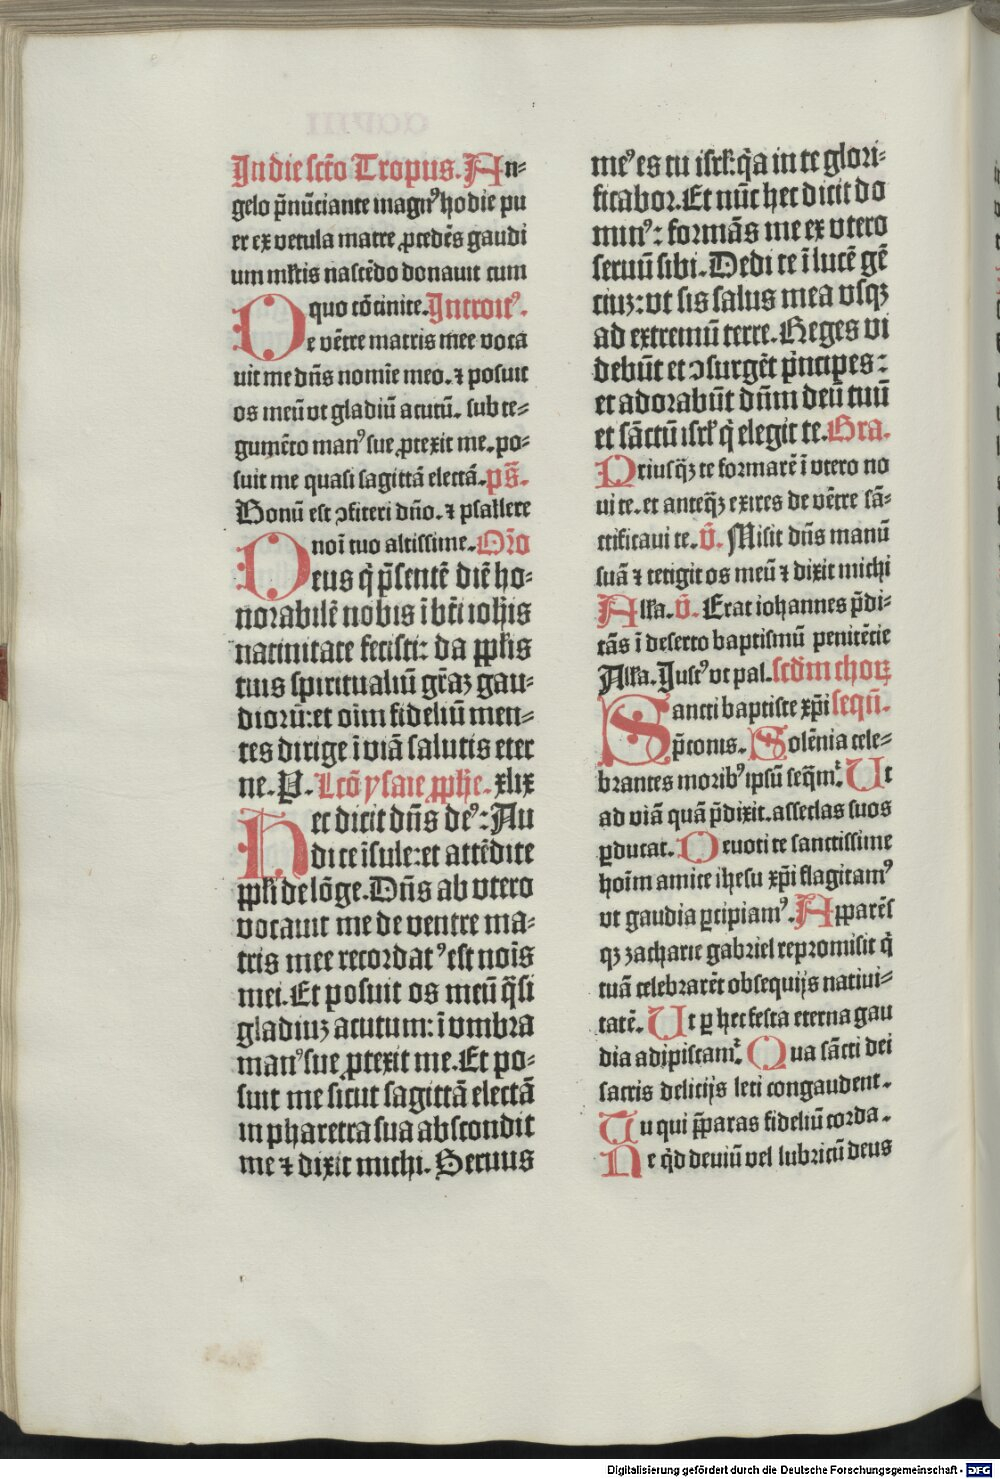 In die sct̄o Tropus. An⸗
gelo p̄nūciante magnꝰ hodie pu
er ex vetula matre ꝓcedēs gaudi
um mĺtis nascēdo donauit cum
quo cōcinite. Introitꝰ.
De vētre matris mee voca
uit me dn̄s nomīe meo. ⁊ posuit
os meū vt gladiū acutū. sub te⸗
gumēto manꝰ sue ꝓtexit me. po⸗
suit me quasi sagittā electā. ps̄.
Bonū est ↄfiteri dn̄o. ⁊ psallere
noī tuo altissime. Or̄o
Deus q̄ p̄sentē diē ho⸗
norabilē nobis ī bt̄i ioh̄is
natiuitate fecisti: da ppĺis
tuis spiritualiū gr̄aꝝ gau⸗
diorū: et oīm fideliū men⸗
tes dirige ī viā salutis eter
ne. P. Lcō ysaie ꝓph̄e. xlix
Hec dicit dn̄s deꝰ: Au
dite īsule: et attēdite
ppĺi de lōge. Dn̄s ab vtero
vocauit me de ventre ma⸗
tris mee recordatꝰ est noīs
mei. Et posuit os meū q̄si
gladiuꝫ acutum: ī vmbra
manꝰ sue ꝓtexit me. Et po⸗
suit me sicut sagittā electā
in pharetra sua abscondit
me ⁊ dixit michi. Seruus
meꝰ es tu isrĺ. q̄a in te glori⸗
ficabor. Et nūc hec dicit do
minꝰ: formās me ex vtero
seruū sibi. Dedi te ī lucē gē
tiuꝫ: vt sis salus mea vsqꝫ
ad extremū terre. Reges vi
debūt et ↄsurgēt p̄ncipes:
et adorabūt dn̄m deū tuū
et sāctū isrĺ q̄ elegit te. Gra.
Priusq̄ꝫ te formarē ī vtero no
ui te. et anteq̄ꝫ exires de vētre sā⸗
ctificaui te. v̄. Misit dn̄s manū
suā ⁊ tetigit os meū ⁊ dixit michi
Alĺa. v̄. Erat iohannes p̄di⸗
cās ī deserto baptismū penitētie
Alĺa. Iustꝰ vt pal. scd̄m choꝝ
Sancti baptiste xp̄i seqū.
p̄conis. Solēnia cele⸗
brantes moribꝰ ipsū seq̄mᷣ. Ut
ad viā quā p̄dixit. asseclas suos
ꝑducat. Deuoti te sanctissime
hoīm amice ihesu xp̄i flagitamꝰ
vt gaudia ꝑcipiamꝰ. Apparēs
qꝫ zacharie gabriel repromisit q̄
tuā celebrarēt obsequijs natiui⸗
tatē. Ut ꝑ hec festa eterna gau
dia adipiscamᷣ. Qua sācti dei
sacris delicijs leti congaudent.
Tu qui p̄paras fideliū corda.
Ne q̄d deuiū vel lubricū deus
Digitalisierung gefördert durch die Deutsche Forschungsgemeinschaft - DFG